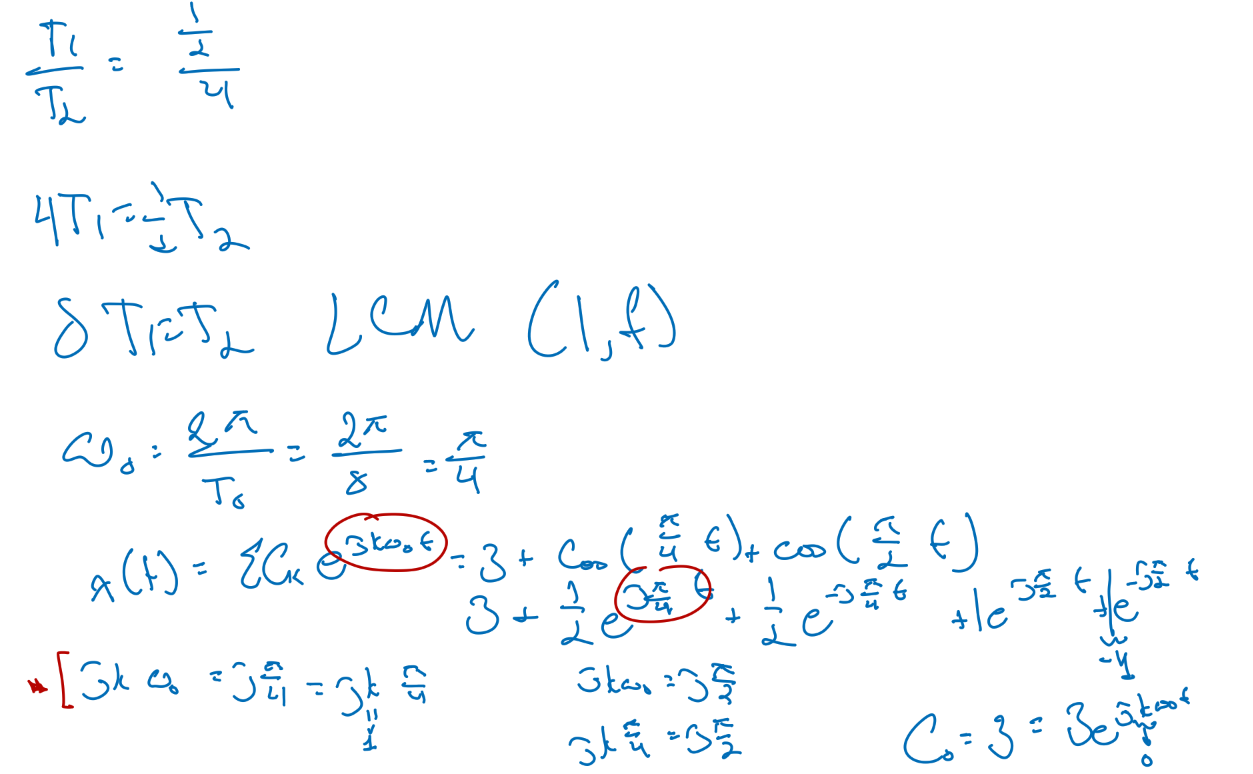 T1/T2 = (1/2)/4
4T1 = 1/2 T2
8T1 = T2 LCM (1,f)
ω0 = 2π/T0 = 2π/8 = π/4
x(t) = ΣCk e^(jkω0t) = 3 + cos(π/4 t) + cos(π/2 t)
3 + 1/2 e^(jπ/4 t) + 1/2 e^(-jπ/4 t) + 1e^(jπ/2 t) + 1e^(-jπ/2 t)
[jkω0 = jπ/4 = jk π/4
jkω0 = jπ/2
1
jk π/4 = jπ/2
C0 = 3 = 3e^(jkω0t)
0